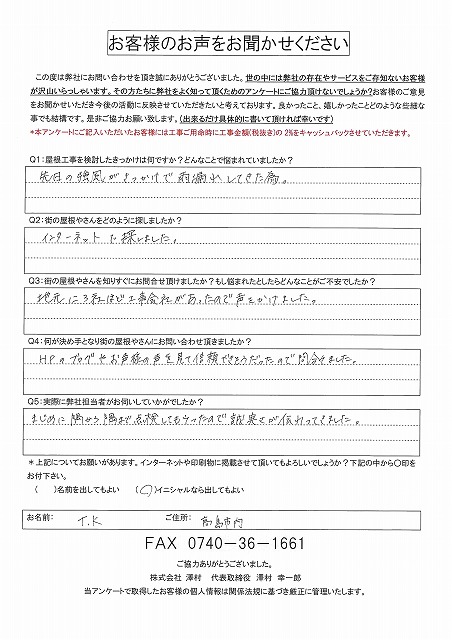 お客様のお声をお聞かせください
この度は弊社にお問い合わせを頂き誠にありがとうございました。世の中には弊社の存在やサービスをご存知ないお客様
が沢山いらっしゃいます。その方たちに弊社をよく知って頂くためのアンケートにご協力頂けないでしょうか?お客様のご意見
をお聞かせいただき今後の活動に反映させていただきたいと考えております。良かったこと、嬉しかったことどのような些細な
事でも結構です。是非ご協力お願い致します。(出来るだけ具体的に書いて頂ければ幸いです)
*本アンケートにご記入いただいたお客様には工事ご用命時に工事金額(税抜き)の 2%をキャッシュバックさせていただきます。
Q1:屋根工事を検討したきっかけは何ですか?どんなことで悩まれていましたか?
先日の強風がきっかけで雨漏れしてきた為。
Q2:街の屋根やさんをどのように探しましたか?
インターネットで探しました。
Q3:街の屋根やさんを知りすぐにお問合せ頂けましたか?もし悩まれたとしたらどんなことがご不安でしたか?
地元に3社ほど工事会社があったので声をかけました。
Q4:何が決め手となり街の屋根やさんにお問い合わせ頂きましたか?
HPのブログやお客様の声を見て信頼できそうだったので問合せました。
Q5:実際に弊社担当者がお伺いしていかがでしたか?
まじめに隅から隅まで点検してもらったので誠実さが伝わってきました。
*上記についてお願いがあります。インターネットや印刷物に掲載させて頂いてもよろしいでしょうか?下記の中から〇印を
お付下さい。
( )名前を出してもよい (〇)イニシャルなら出してもよい
お名前: T.K ご住所: 高島市内
FAX 0740-36-1661
ご協力ありがとうございました。
株式会社 澤村 代表取締役 澤村 幸一郎
当アンケートで取得したお客様の個人情報は関係法規に基づき厳正に管理いたします。